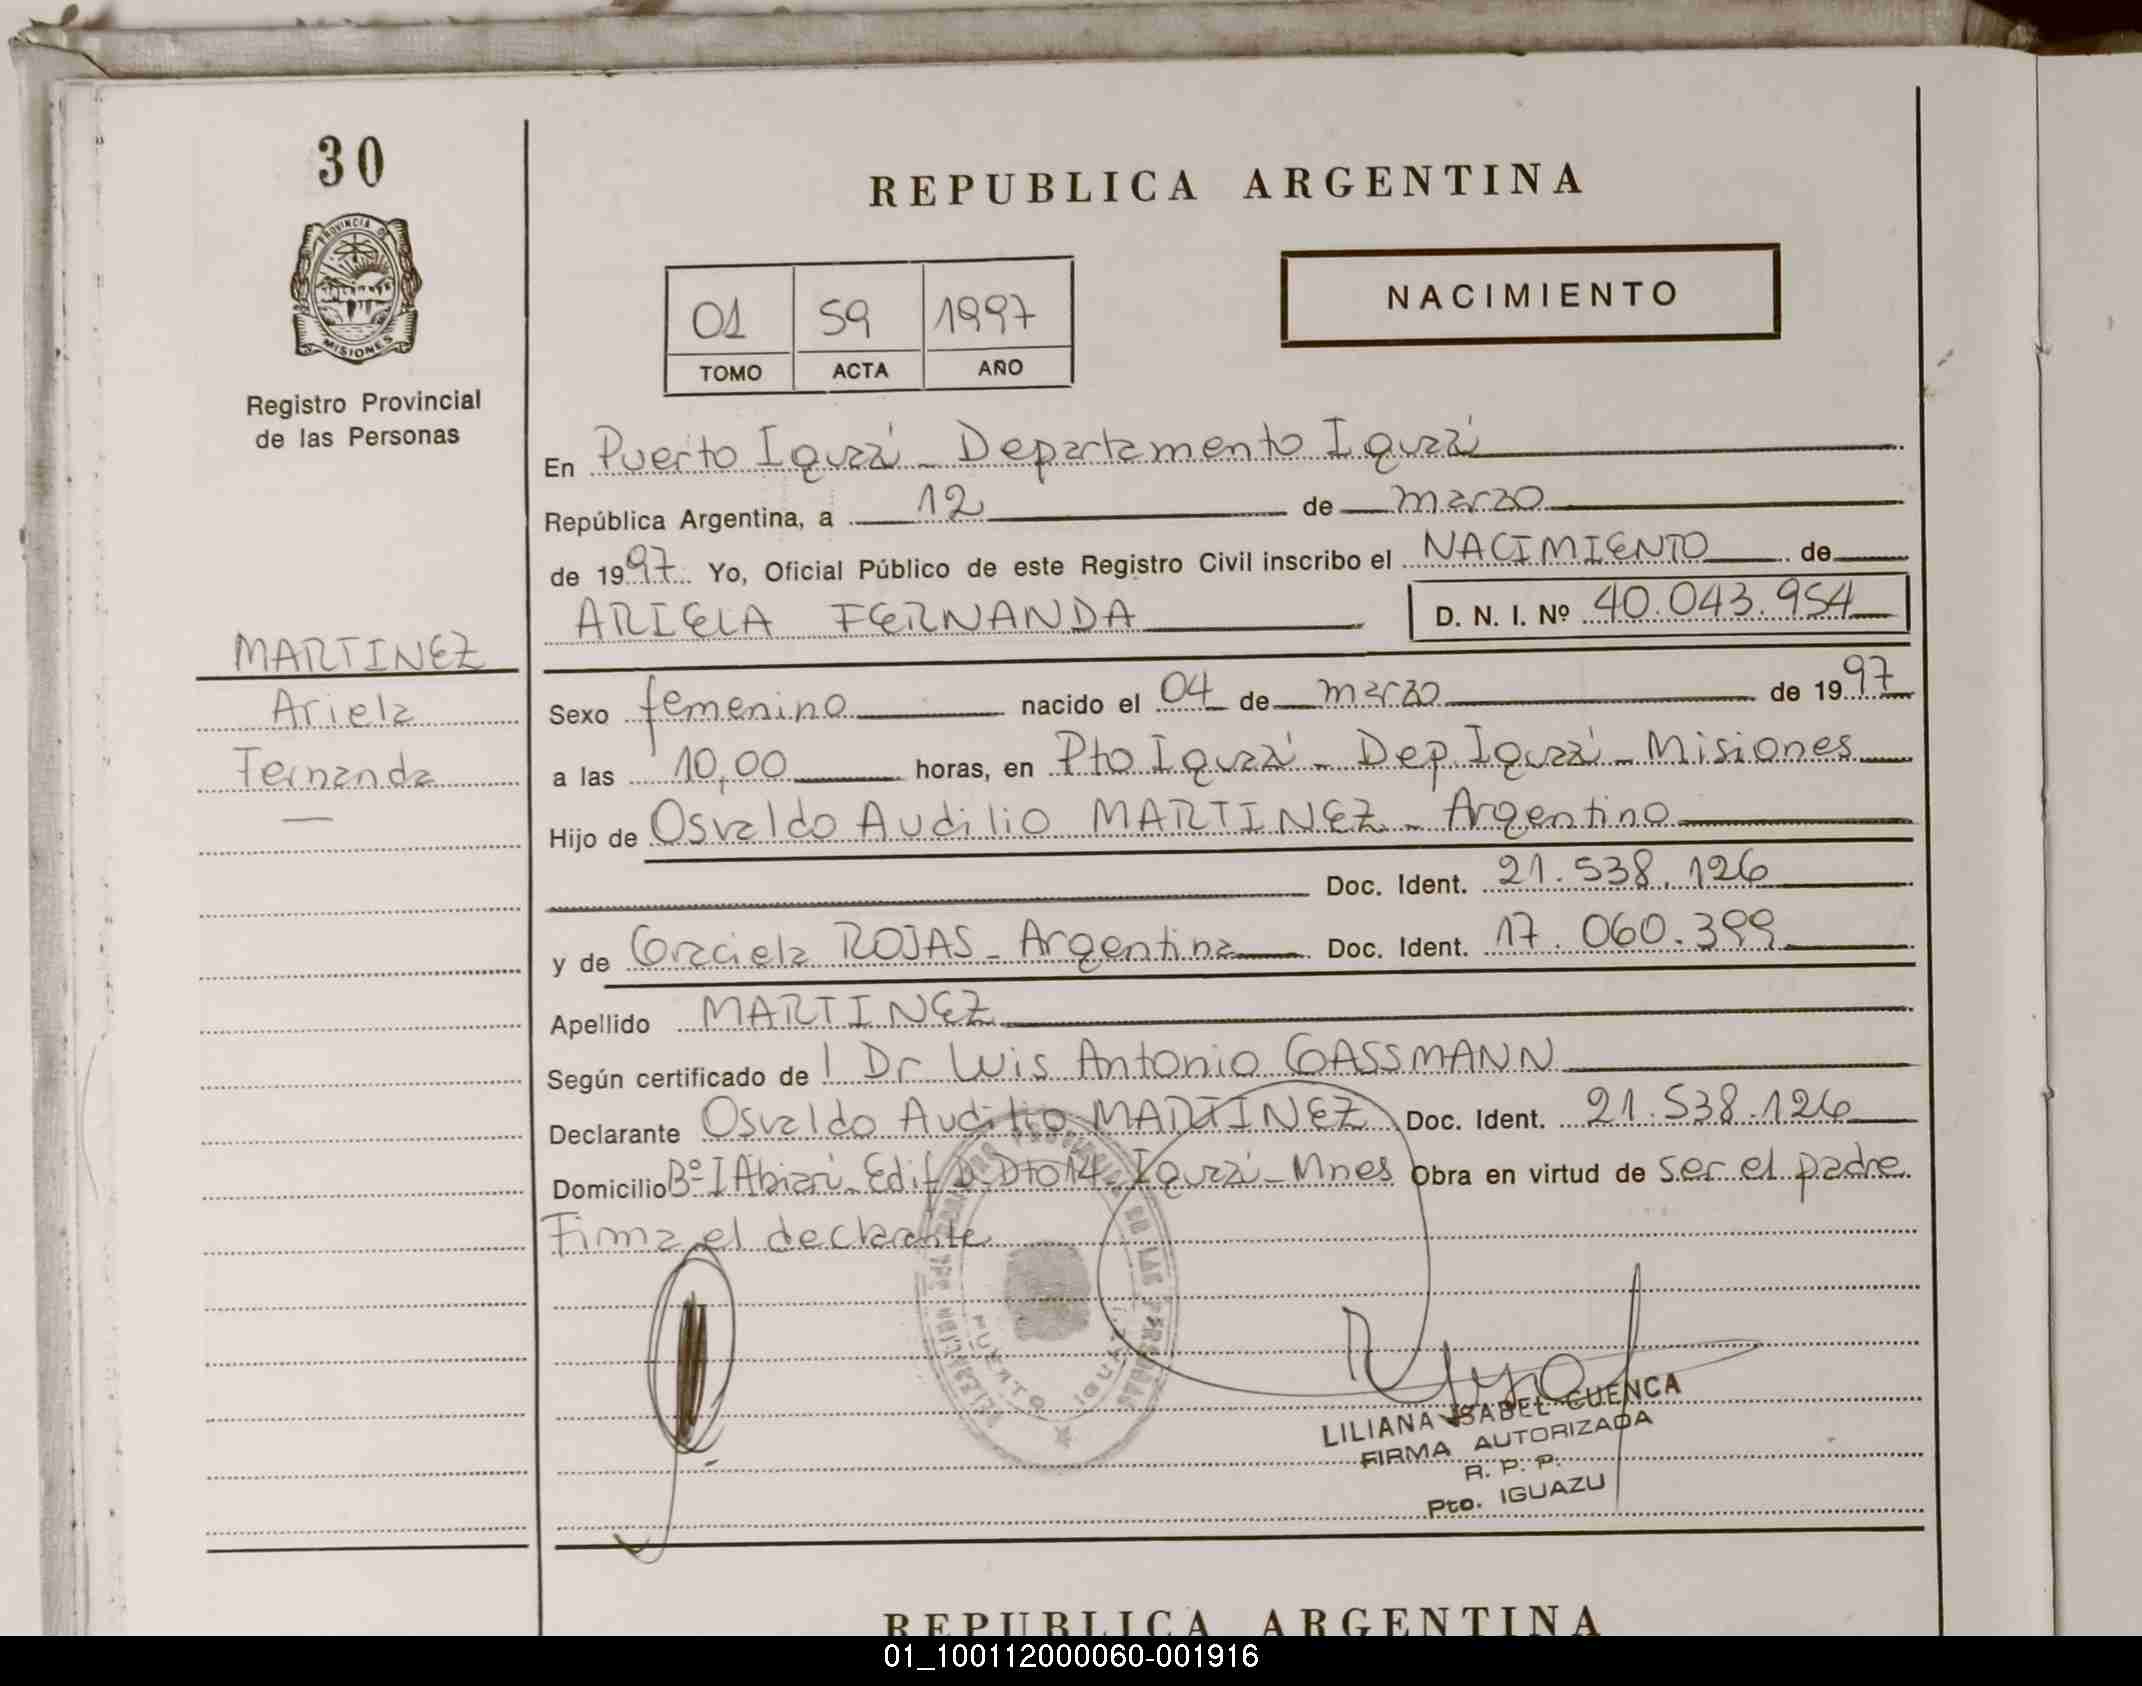 30
PROVINCIA DE
MISIONES
Registro Provincial
de las Personas
MARTINEZ
Ariela
Fernanda
REPUBLICA ARGENTINA
01 59 1997
TOMO ACTA AÑO
NACIMIENTO
En Puerto Iguazú - Departamento Iguazú
República Argentina, a 12 de marzo
de 1997 Yo, Oficial Público de este Registro Civil inscribo el NACIMIENTO de
ARIELA FERNANDA D. N. I. Nº 40.043.954
Sexo femenino nacido el 04 de marzo de 1997
a las 10,00 horas, en Pto Iguazú - Dep Iguazú - Misiones
Hijo de Osvaldo Audilio MARTINEZ - Argentino
Doc. Ident. 21.538.126
y de Graciela ROJAS - Argentina Doc. Ident. 17.060.399
Apellido MARTINEZ
Según certificado de l Dr Luis Antonio GASSMANN
Declarante Osvaldo Audilio MARTINEZ Doc. Ident. 21.538.126
Domicilio Bº I Abiari - Edif D - Dto 14 - Iguazú - Mnes Obra en virtud de ser el padre.
Firma el declarante
PUERTO IGUAZU
LILIANA ISABEL CUENCA
FIRMA AUTORIZADA
R. P. P.
Pto. IGUAZU
REPUBLICA ARGENTINA
01_100112000060-001916